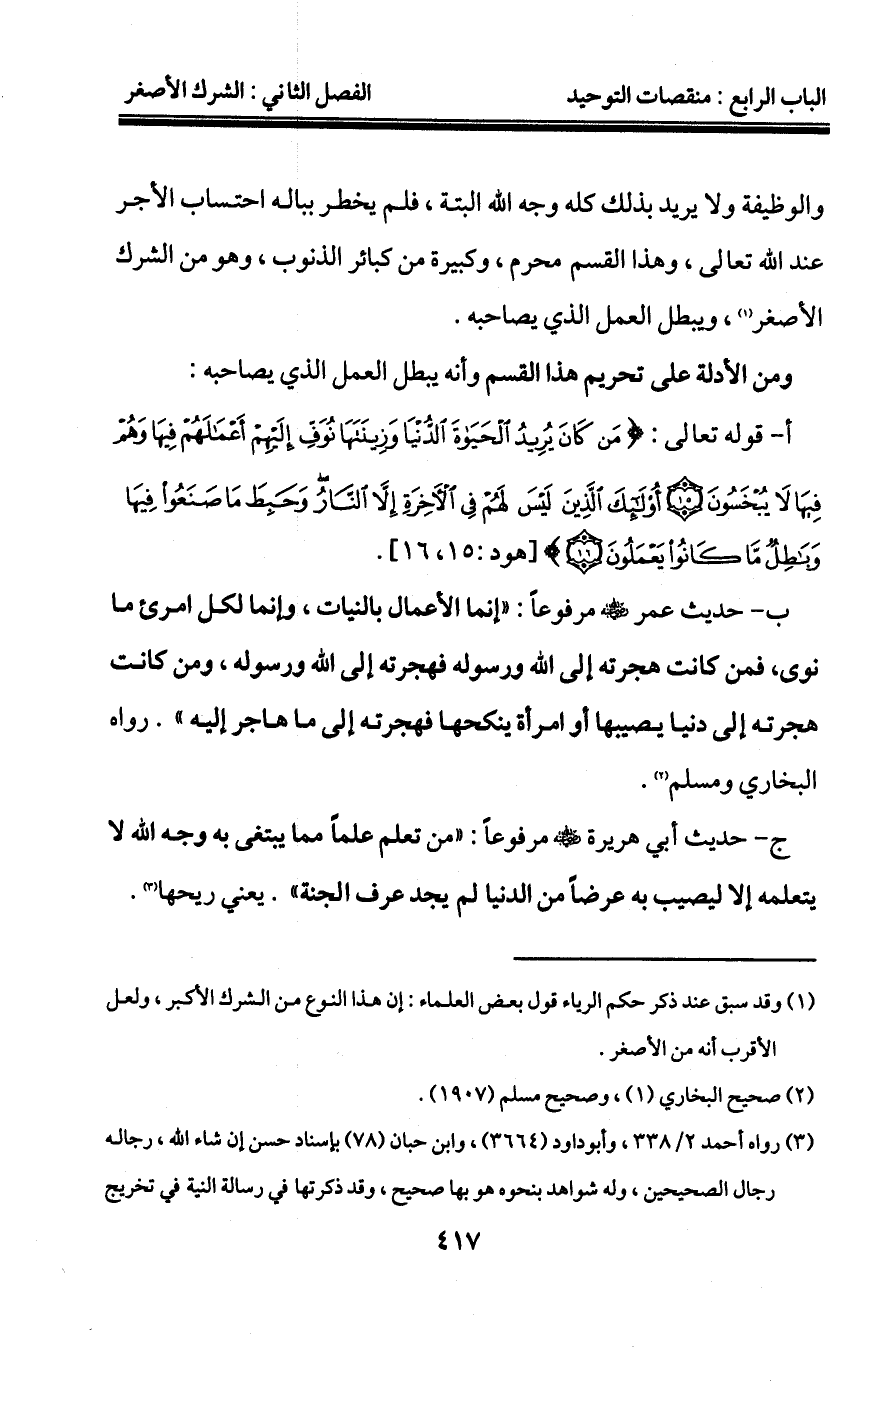 الباب الرابع : منقصات التوحيد الفصل الثاني : الشرك الأصغر
والوظيفة ولا يريد بذلك كله وجه الله البتة ، فلم يخطر بباله احتساب الأجر
عند الله تعالى ، وهذا القسم محرم ، وكبيرة من كبائر الذنوب ، وهو من الشرك
الأصغر(١) ، ويبطل العمل الذي يصاحبه .
ومن الأدلة على تحريم هذا القسم وأنه يبطل العمل الذي يصاحبه :
أ- قوله تعالى : ﴿ مَن كَانَ يُرِيدُ ٱلْحَيَوٰةَ ٱلدُّنْيَا وَزِينَتَهَا نُوَفِّ إِلَيْهِمْ أَعْمَٰلَهُمْ فِيهَا وَهُمْ
فِيهَا لَا يُبْخَسُونَ ۝١٥ أُو۟لَٰٓئِكَ ٱلَّذِينَ لَيْسَ لَهُمْ فِى ٱلْءَاخِرَةِ إِلَّا ٱلنَّارُ ۖ وَحَبِطَ مَا صَنَعُوا۟ فِيهَا
وَبَٰطِلٌ مَّا كَانُوا۟ يَعْمَلُونَ ۝١٦ ﴾ [هود :١٥، ١٦] .
ب- حديث عمر رضي الله عنه مرفوعاً : «إنما الأعمال بالنيات ، وإنما لكل امرئ ما
نوى، فمن كانت هجرته إلى الله ورسوله فهجرته إلى الله ورسوله ، ومن كانت
هجرته إلى دنيا يصيبها أو امرأة ينكحها فهجرته إلى ما هاجر إليه » . رواه
البخاري ومسلم(٢) .
ج- حديث أبي هريرة رضي الله عنه مرفوعاً : «من تعلم علماً مما يبتغى به وجه الله لا
يتعلمه إلا ليصيب به عرضاً من الدنيا لم يجد عرف الجنة» . يعني ريحها(٣) .
(١) وقد سبق عند ذكر حكم الرياء قول بعض العلماء : إن هذا النوع من الشرك الأكبر ، ولعل
الأقرب أنه من الأصغر .
(٢) صحيح البخاري (١) ، وصحيح مسلم (١٩٠٧) .
(٣) رواه أحمد ٢/ ٣٣٨ ، وأبوداود (٣٦٦٤) ، وابن حبان (٧٨) بإسناد حسن إن شاء الله ، رجاله
رجال الصحيحين ، وله شواهد بنحوه هو بها صحيح ، وقد ذكرتها في رسالة النية في تخريج
٤١٧